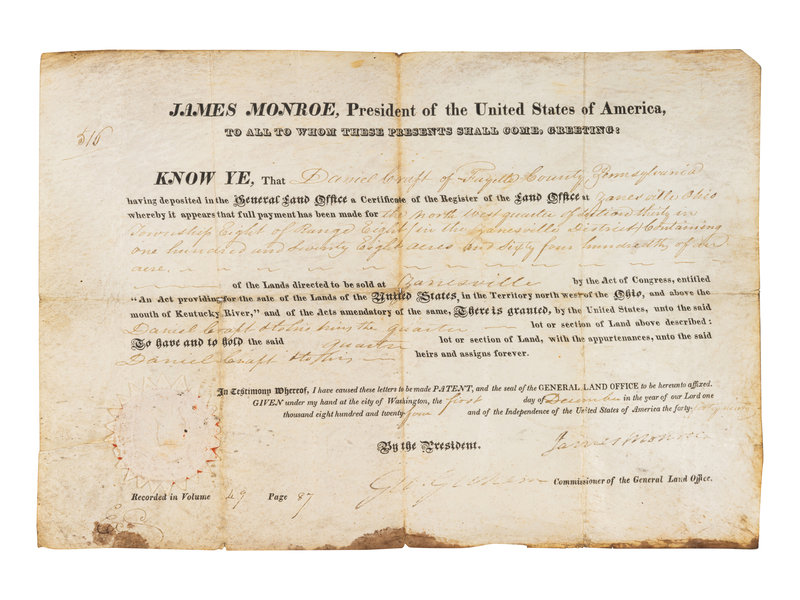 JAMES MONROE, President of the United States of America,
TO ALL TO WHOM THESE PRESENTS SHALL COME, GREETING:
516
KNOW YE, That Daniel Craft of Fayette County Pennsylvania
having deposited in the General Land Office a Certificate of the Register of the Land Office at Zanesville Ohio
whereby it appears that full payment has been made for the North West quarter of section thirty in
Township Eight of Range Eight (in the Zanesville District) Containing
one hundred and seventy Eight acres and sixty four hundredths of an
acre,
of the Lands directed to be sold at Zanesville by the Act of Congress, entitled
"An Act providing for the sale of the Lands of the United States, in the Territory north west of the Ohio, and above the
mouth of Kentucky River," and of the Acts amendatory of the same, There is granted, by the United States, unto the said
Daniel Craft the quarter lot or section of Land above described:
To have and to hold the said quarter lot or section of Land, with the appurtenances, unto the said
Daniel Craft his heirs and assigns forever.
In Testimony Whereof, I have caused these letters to be made PATENT, and the seal of the GENERAL LAND OFFICE to be hereunto affixed.
GIVEN under my hand at the city of Washington, the first day of December in the year of our Lord one
thousand eight hundred and twenty-four and of the Independence of the United States of America the forty-
By the President. James Monroe
Commissioner of the General Land Office.
Recorded in Volume 49 Page 87